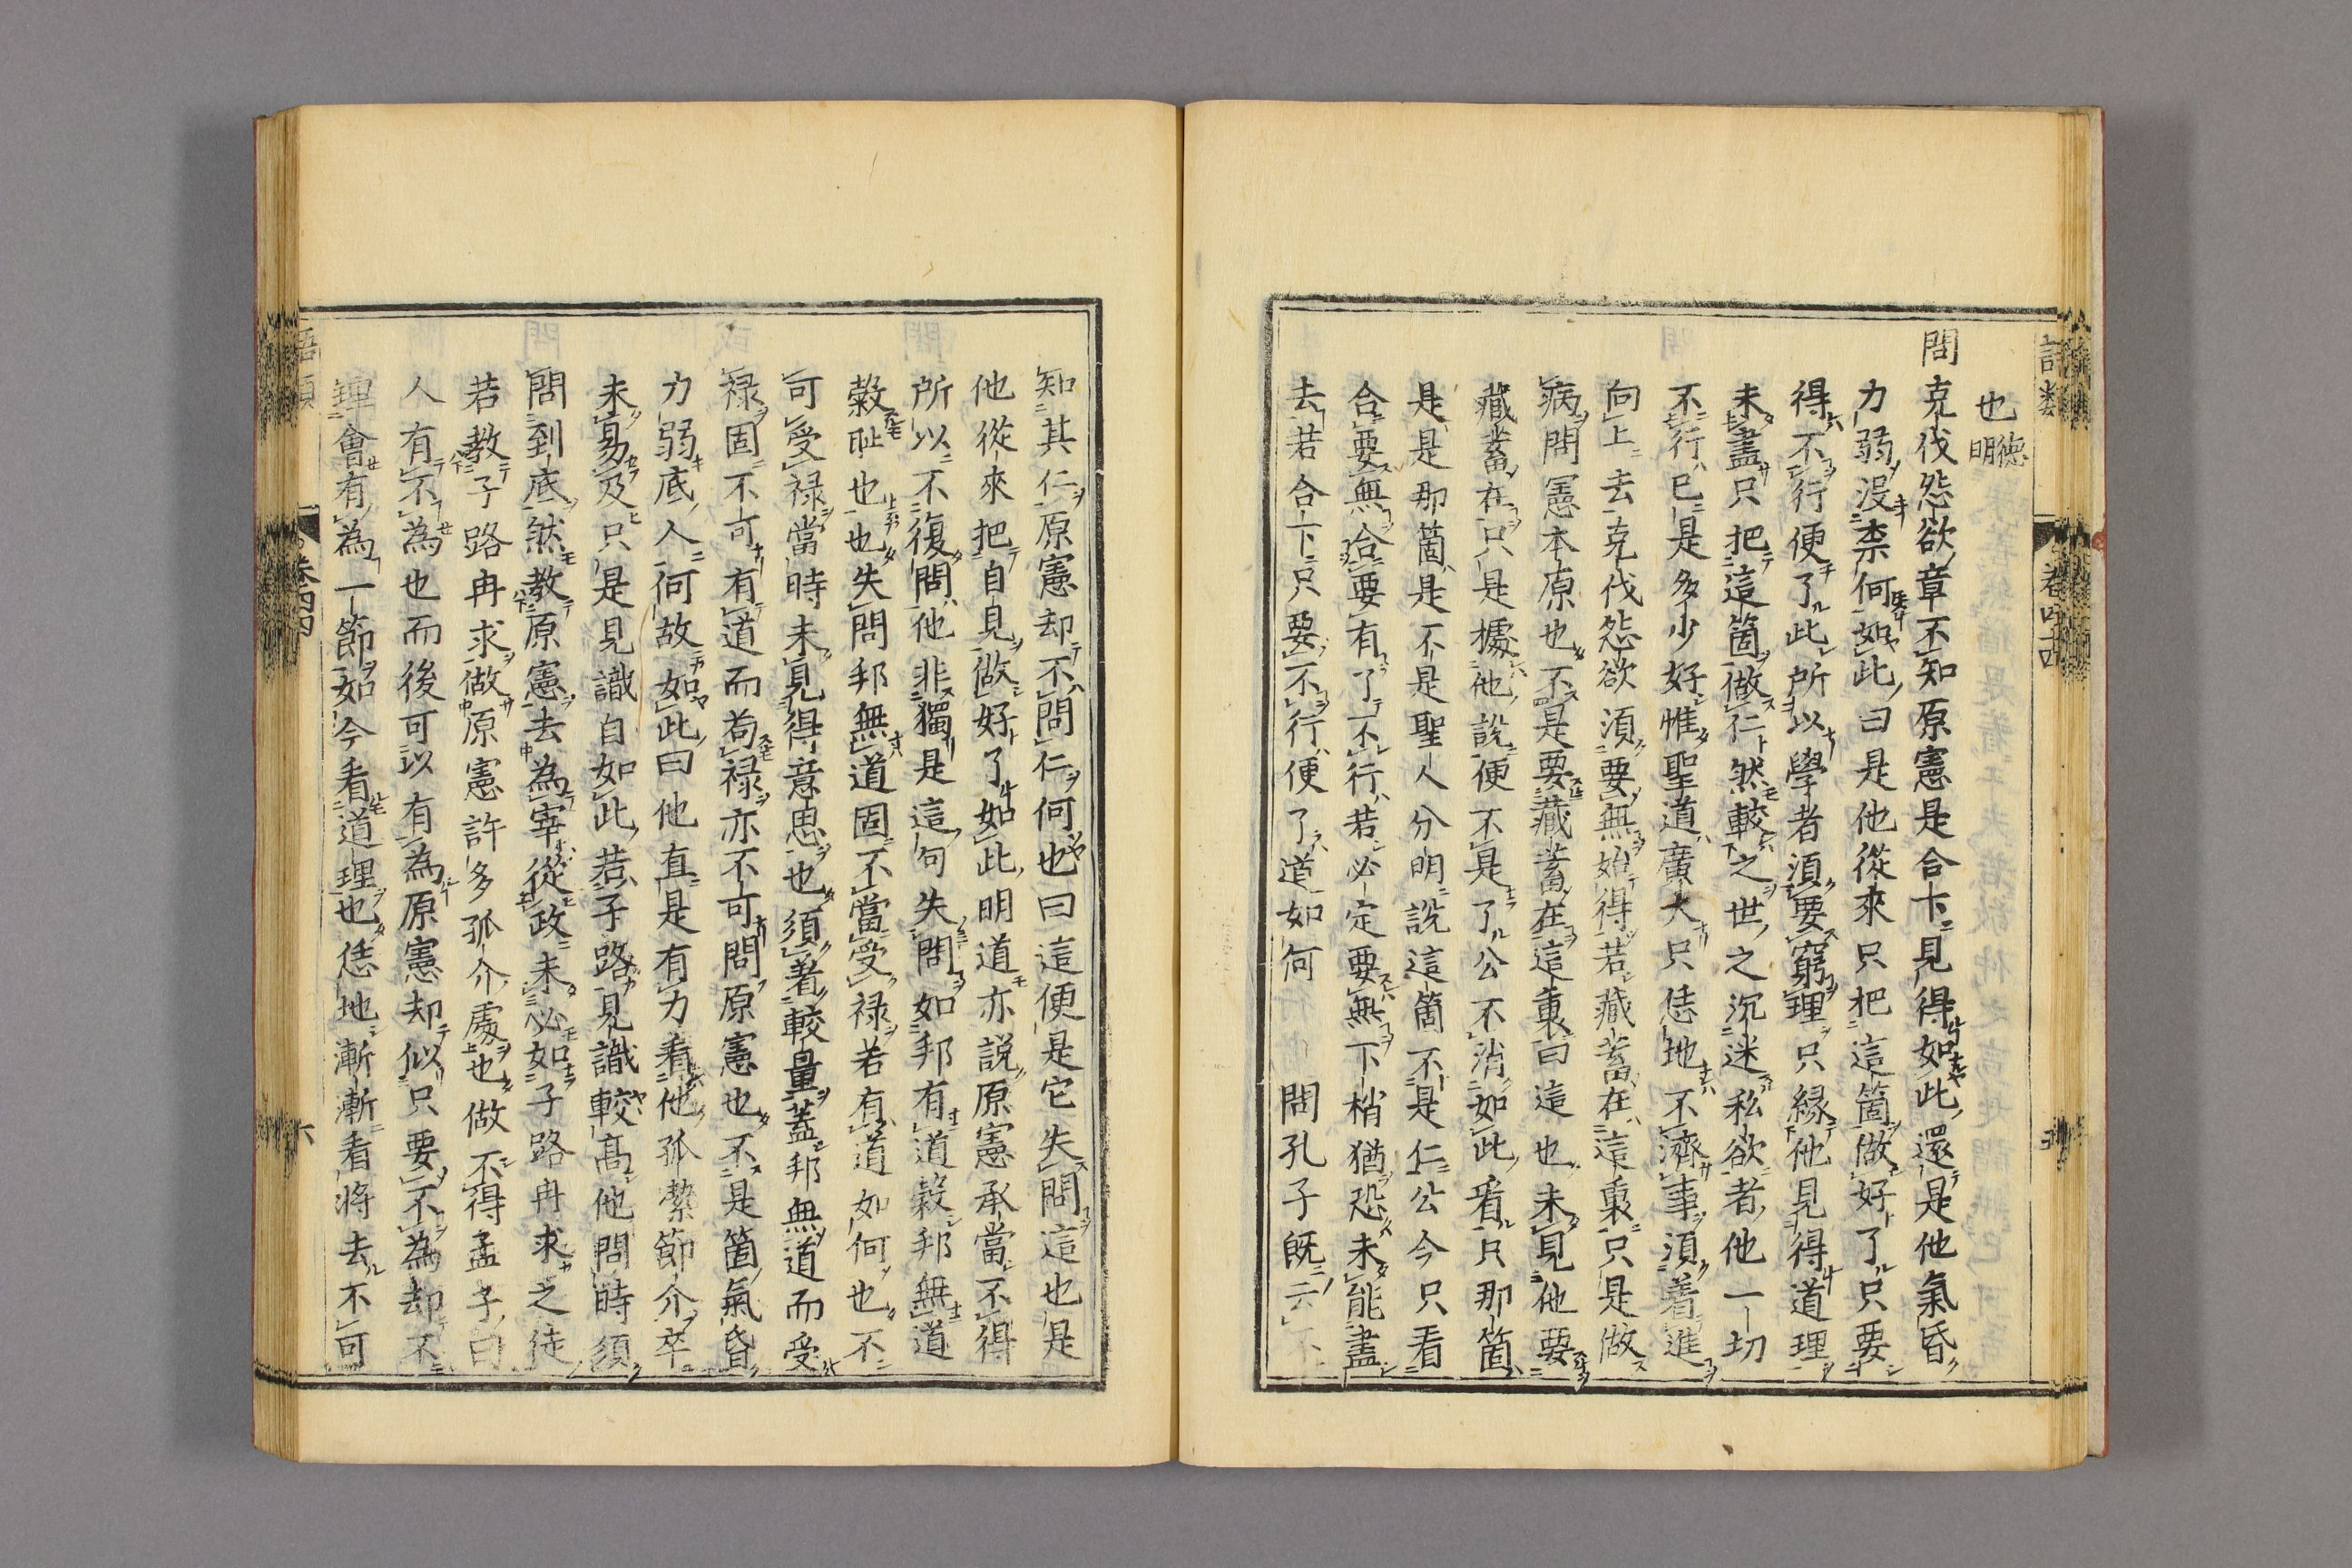 也 德明
問克伐怨欲章不知原憲是合下見得如此還是他氣昏
力弱沒柰何如此曰是他從來只把這箇做好了只要
得不行便了此所以學者須要窮理只緣他見得道理
未盡只把這箇做仁然較之世之沉迷私欲者他一切
不行已是多少好惟聖道廣大只恁地不濟事須着進
向上去克伐怨欲須要無始得若藏蓄在這裏只是做
病問憲本原也不是要藏蓄在這裏曰這也未見他要
藏蓄在只是據他說便不是了公不消如此看只那箇
是是那箇是不是聖人分明說這箇不是仁公今只看
合要無合要有了不行若必定要無下梢猶恐未能盡
去若合下只要不行便了道如何 問孔子既云不
卷四十四
知其仁原憲却不問仁何也曰這便是它失問這也是
他從來把自見做好了如此明道亦說原憲承當不得
所以不復問他非獨是這句失問如邦有道穀邦無道
穀恥也也失問邦無道固不當受祿若有道如何也不
可受祿當時未見得意思也須着較量蓋邦無道而受
祿固不可有道而苟祿亦不可問原憲也不是箇氣昏
力弱底人何故如此曰他直是有力看他孤潔節介卒
未易及只是見識自如此若子路見識較高他問時須
問到底然教原憲去為宰從政未必如子路冉求之徒
若教子路冉求做原憲許多孤介處也做不得孟子曰
人有不為也而後可以有為原憲却似只要不為却不
理會有為一節如今看道理也恁地漸漸看將去不可
卷四四
六